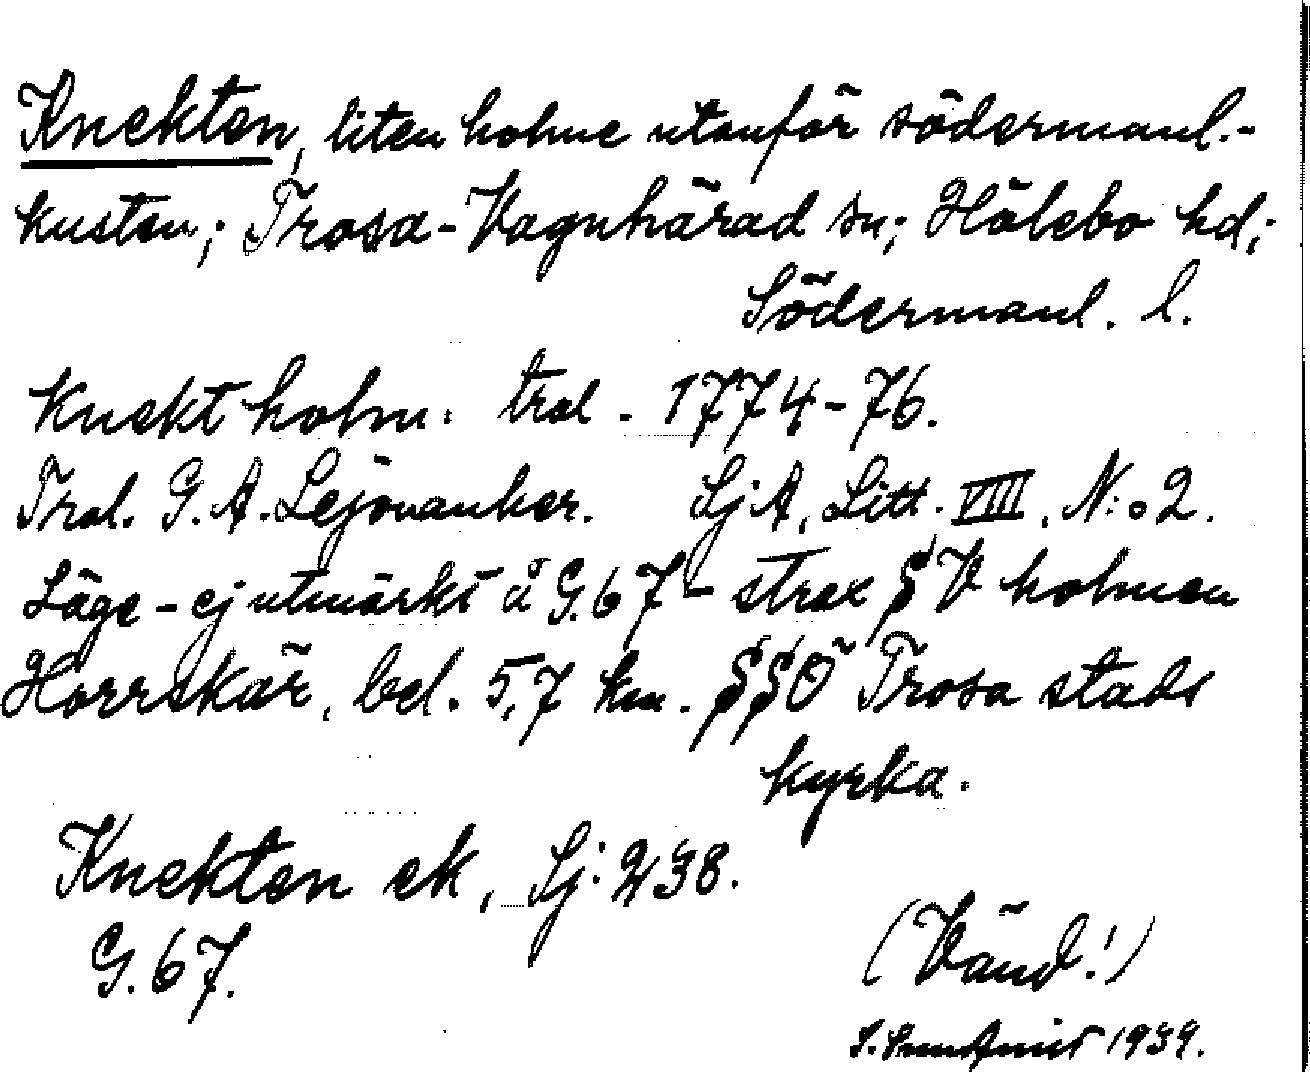 Knekten, liten holme utanför södermanl.-
kusten; Trosa-Vagnhärad sn; Hölebo hd;
Södermanl. l.
Knekt holm. trol. 1774-76.
Trol. G. A. Lejonanker. SjA, Litt. VIII, N:o 2.
Läge - ej utmärkt å G.67 - strax S V holmen
Horrskär, bel. 5,7 km. SSÖ Trosa stads
kyrka.
Knekten ek, Sj: 238.
G. 67.
(Vänd!)
1939.